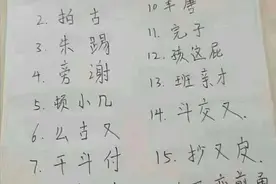 2. 拍古
3. 朱踢
4. 旁谢
5. 顿小几
6. 么古又
7. 干斗付
11. 完子
12. 孩这屁
13. 班亲才
14. 斗交又
15. 抄又皮